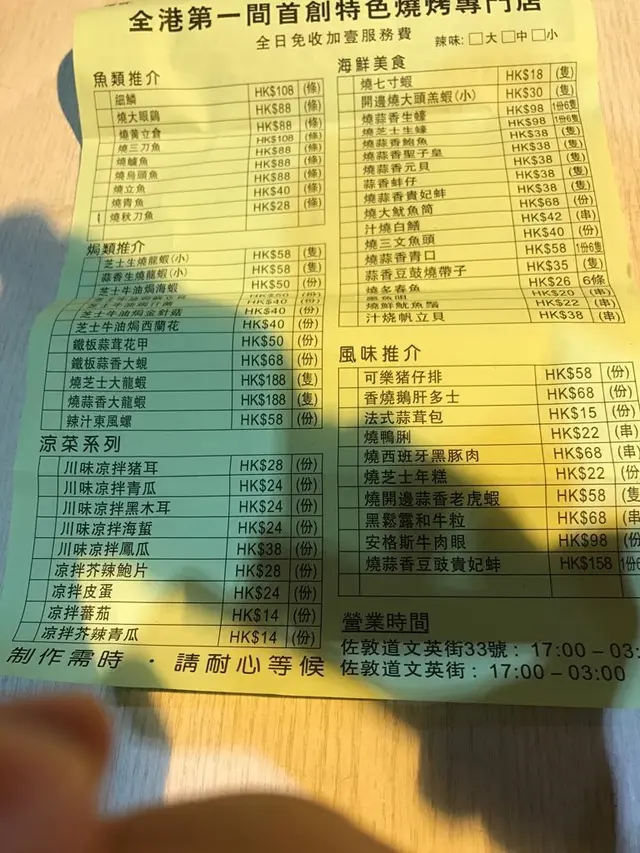 全港第一間首創特色燒烤專門店
全日免收加壹服務費 辣味: □大 □中 □小
魚類推介
細鱗 HK$108 (條)
燒大眼鷄 HK$88 (條)
燒黃立倉 HK$88 (條)
燒三刀魚 HK$108 (條)
燒鱸魚 HK$88 (條)
燒烏頭魚 HK$88 (條)
燒立魚 HK$88 (條)
燒青魚 HK$40 (條)
燒秋刀魚 HK$28 (條)
焗類推介
芝士生燒龍蝦(小) HK$58 (隻)
蒜香生燒龍蝦(小) HK$58 (隻)
芝士牛油焗海蝦 HK$50 (份)
芝士牛油焗金針菇 HK$40 (份)
芝士牛油焗西蘭花 HK$40 (份)
鐵板蒜茸花甲 HK$50 (份)
鐵板蒜香大蜆 HK$68 (份)
燒芝士大龍蝦 HK$188 (隻)
燒蒜香大龍蝦 HK$188 (隻)
辣汁東風螺 HK$58 (份)
涼菜系列
川味凉拌猪耳 HK$28 (份)
川味凉拌青瓜 HK$24 (份)
川味凉拌黑木耳 HK$24 (份)
川味凉拌海蜇 HK$24 (份)
川味凉拌鳳瓜 HK$38 (份)
凉拌芥辣鮑片 HK$28 (份)
凉拌皮蛋 HK$24 (份)
凉拌蕃茄 HK$14 (份)
凉拌芥辣青瓜 HK$14 (份)
制作需時．請耐心等候
海鮮美食
燒七寸蝦 HK$18 (隻)
開邊燒大頭羔蝦(小) HK$30 (隻)
燒蒜香生蠔 HK$98 1份6隻
燒芝士生蠔 HK$98 1份6隻
燒蒜香鮑魚 HK$38 (隻)
燒蒜香聖子皇 HK$38 (隻)
燒蒜香元貝 HK$38 (隻)
蒜香蚌仔 HK$38 (隻)
燒蒜香貴妃蚌 HK$38 (隻)
燒大魷魚筒 HK$68 (份)
汁燒白鱔 HK$42 (串)
燒三文魚頭 HK$40 (份)
燒蒜香青口 HK$58 1份6隻
蒜香豆豉燒帶子 HK$35 (隻)
燒多春魚 HK$26 6條
HK$20 (串)
燒鮮魷魚鬚 HK$22 (串)
汁燒帆立貝 HK$38 (串)
風味推介
可樂猪仔排 HK$58 (份)
香燒鵝肝多士 HK$68 (份)
法式蒜茸包 HK$15 (份)
燒鴨脷 HK$22 (串)
燒西班牙黑豚肉 HK$68 (串)
燒芝士年糕 HK$22 (份
燒開邊蒜香老虎蝦 HK$58 (隻
黑鬆露和牛粒 HK$68 (串
安格斯牛肉眼 HK$98 (份
燒蒜香豆豉貴妃蚌 HK$158 1份6
營業時間
佐敦道文英街33號：17:00 – 03:
佐敦道文英街：17:00 – 03:00